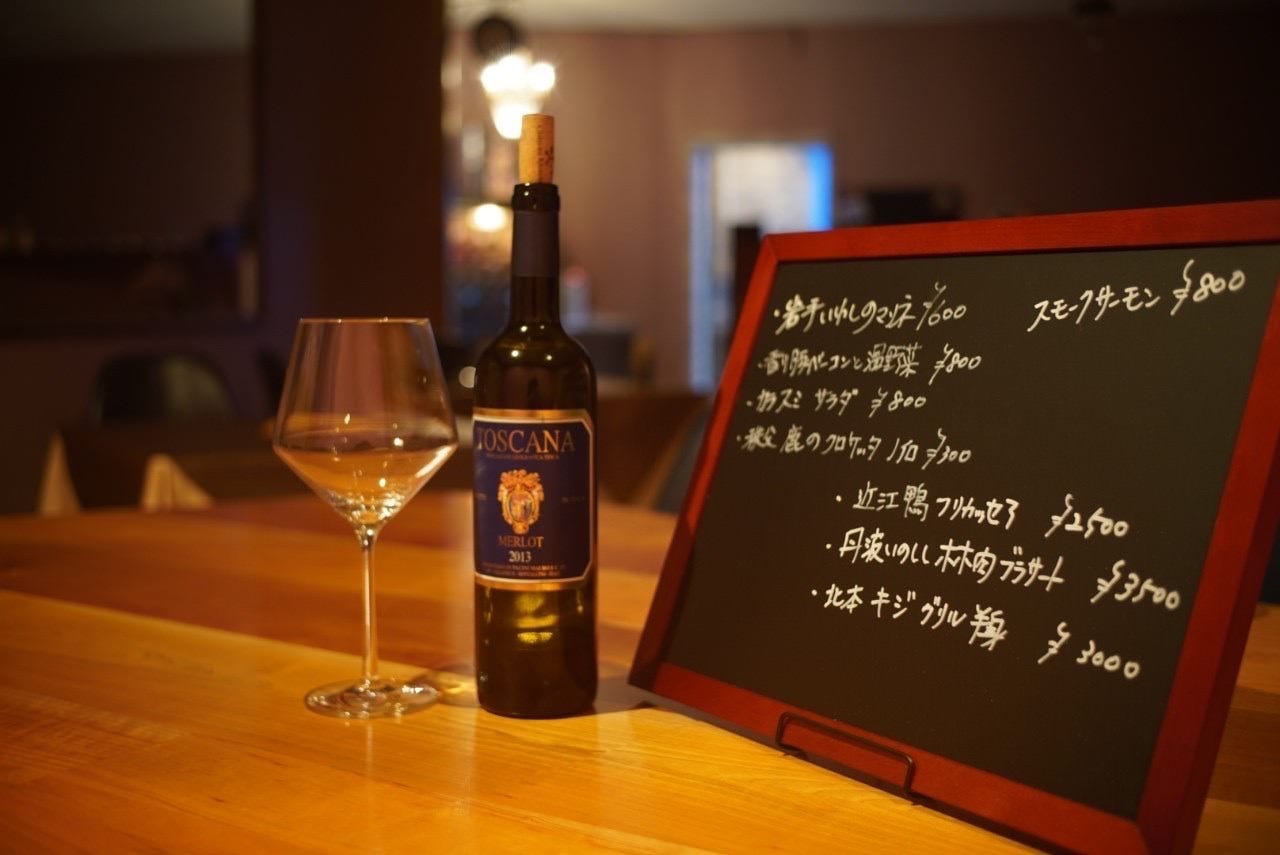 TOSCANA
MERLOT
2013
・岩手いわしのマリネ ¥600
スモークサーモン ¥800
ベーコンと温野菜 ¥800
・カラスミ サラダ ¥800
・秩父 鹿のクロケッタ 1コ ¥300
・近江鴨 フリカッセ ¥2500
・丹波いのしし 林肉ブラサート ¥3500
・北本 キジ グリル ¥3000